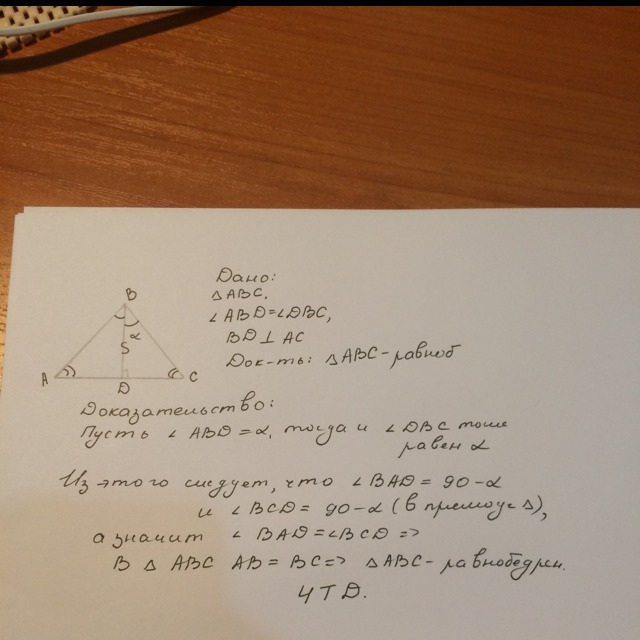 Дано:
△ABC.
∠ABD=∠DBC,
BD⊥AC
Док-ть: △ABC-равноб
B
α
S
A
D
C
Доказательство:
Пусть ∠ABD=α, тогда и ∠DBC тоже
равен α
Из этого следует, что ∠BAD = 90-α
и ∠BCD = 90-α (в прямоуг △),
а значит ∠BAD=∠BCD =>
В △ ABC AB = BC=> △ABC-равнобедрен.
ЧТД.